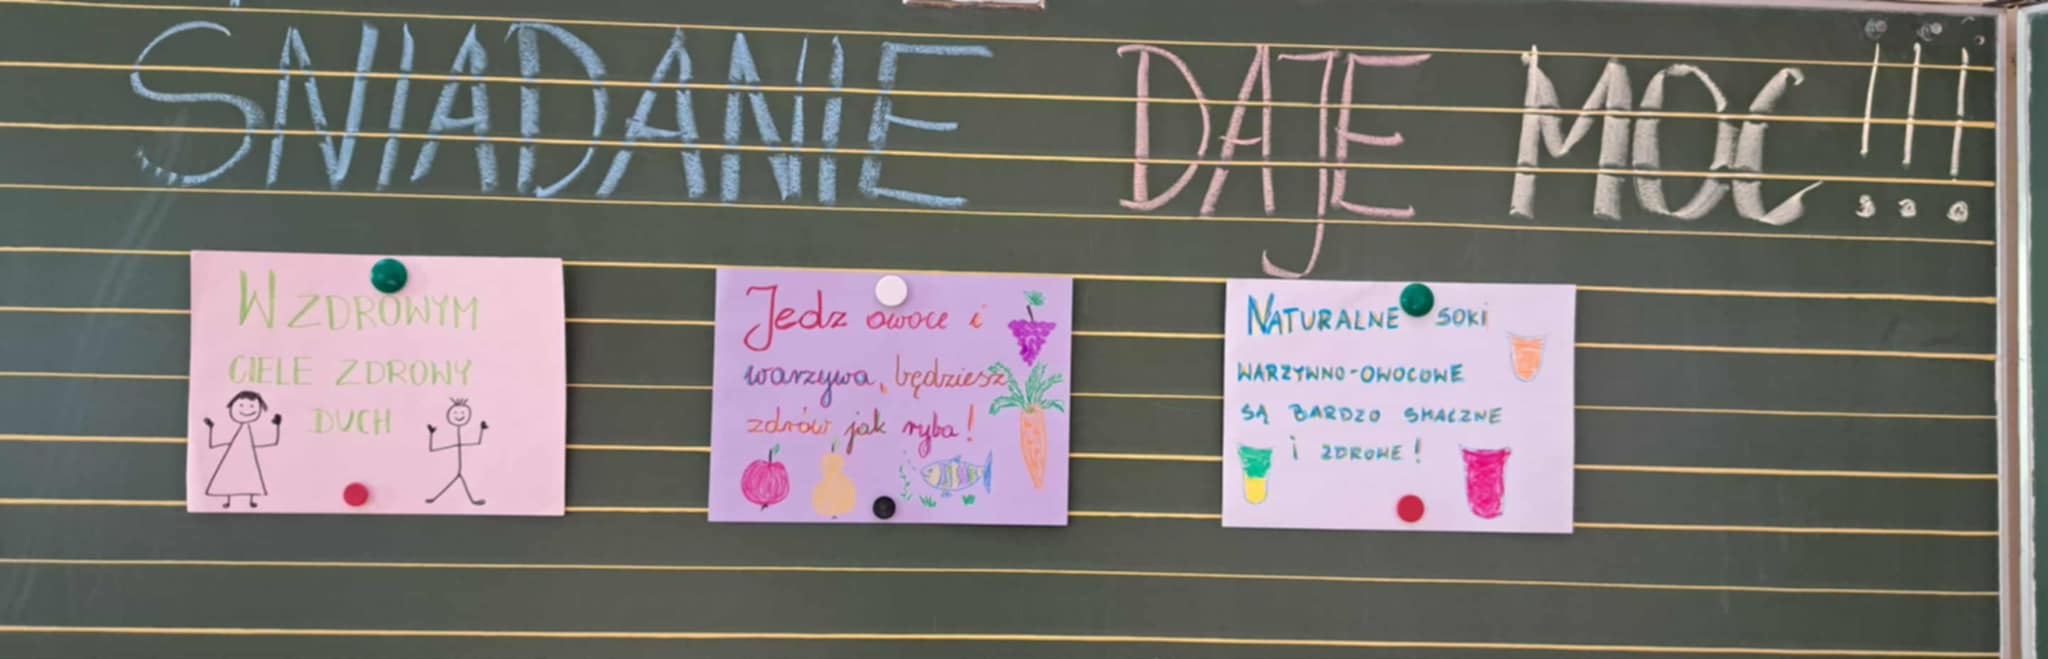 ŚNIADANIE DAJE MOC!!!
W ZDROWYM
CIELE ZDROWY
DUCH
Jedz owoce i
warzywa, będziesz
zdrów jak ryba!
NATURALNE SOKI
WARZYWNO-OWOCOWE
SĄ BARDZO SMACZNE
I ZDROWE!